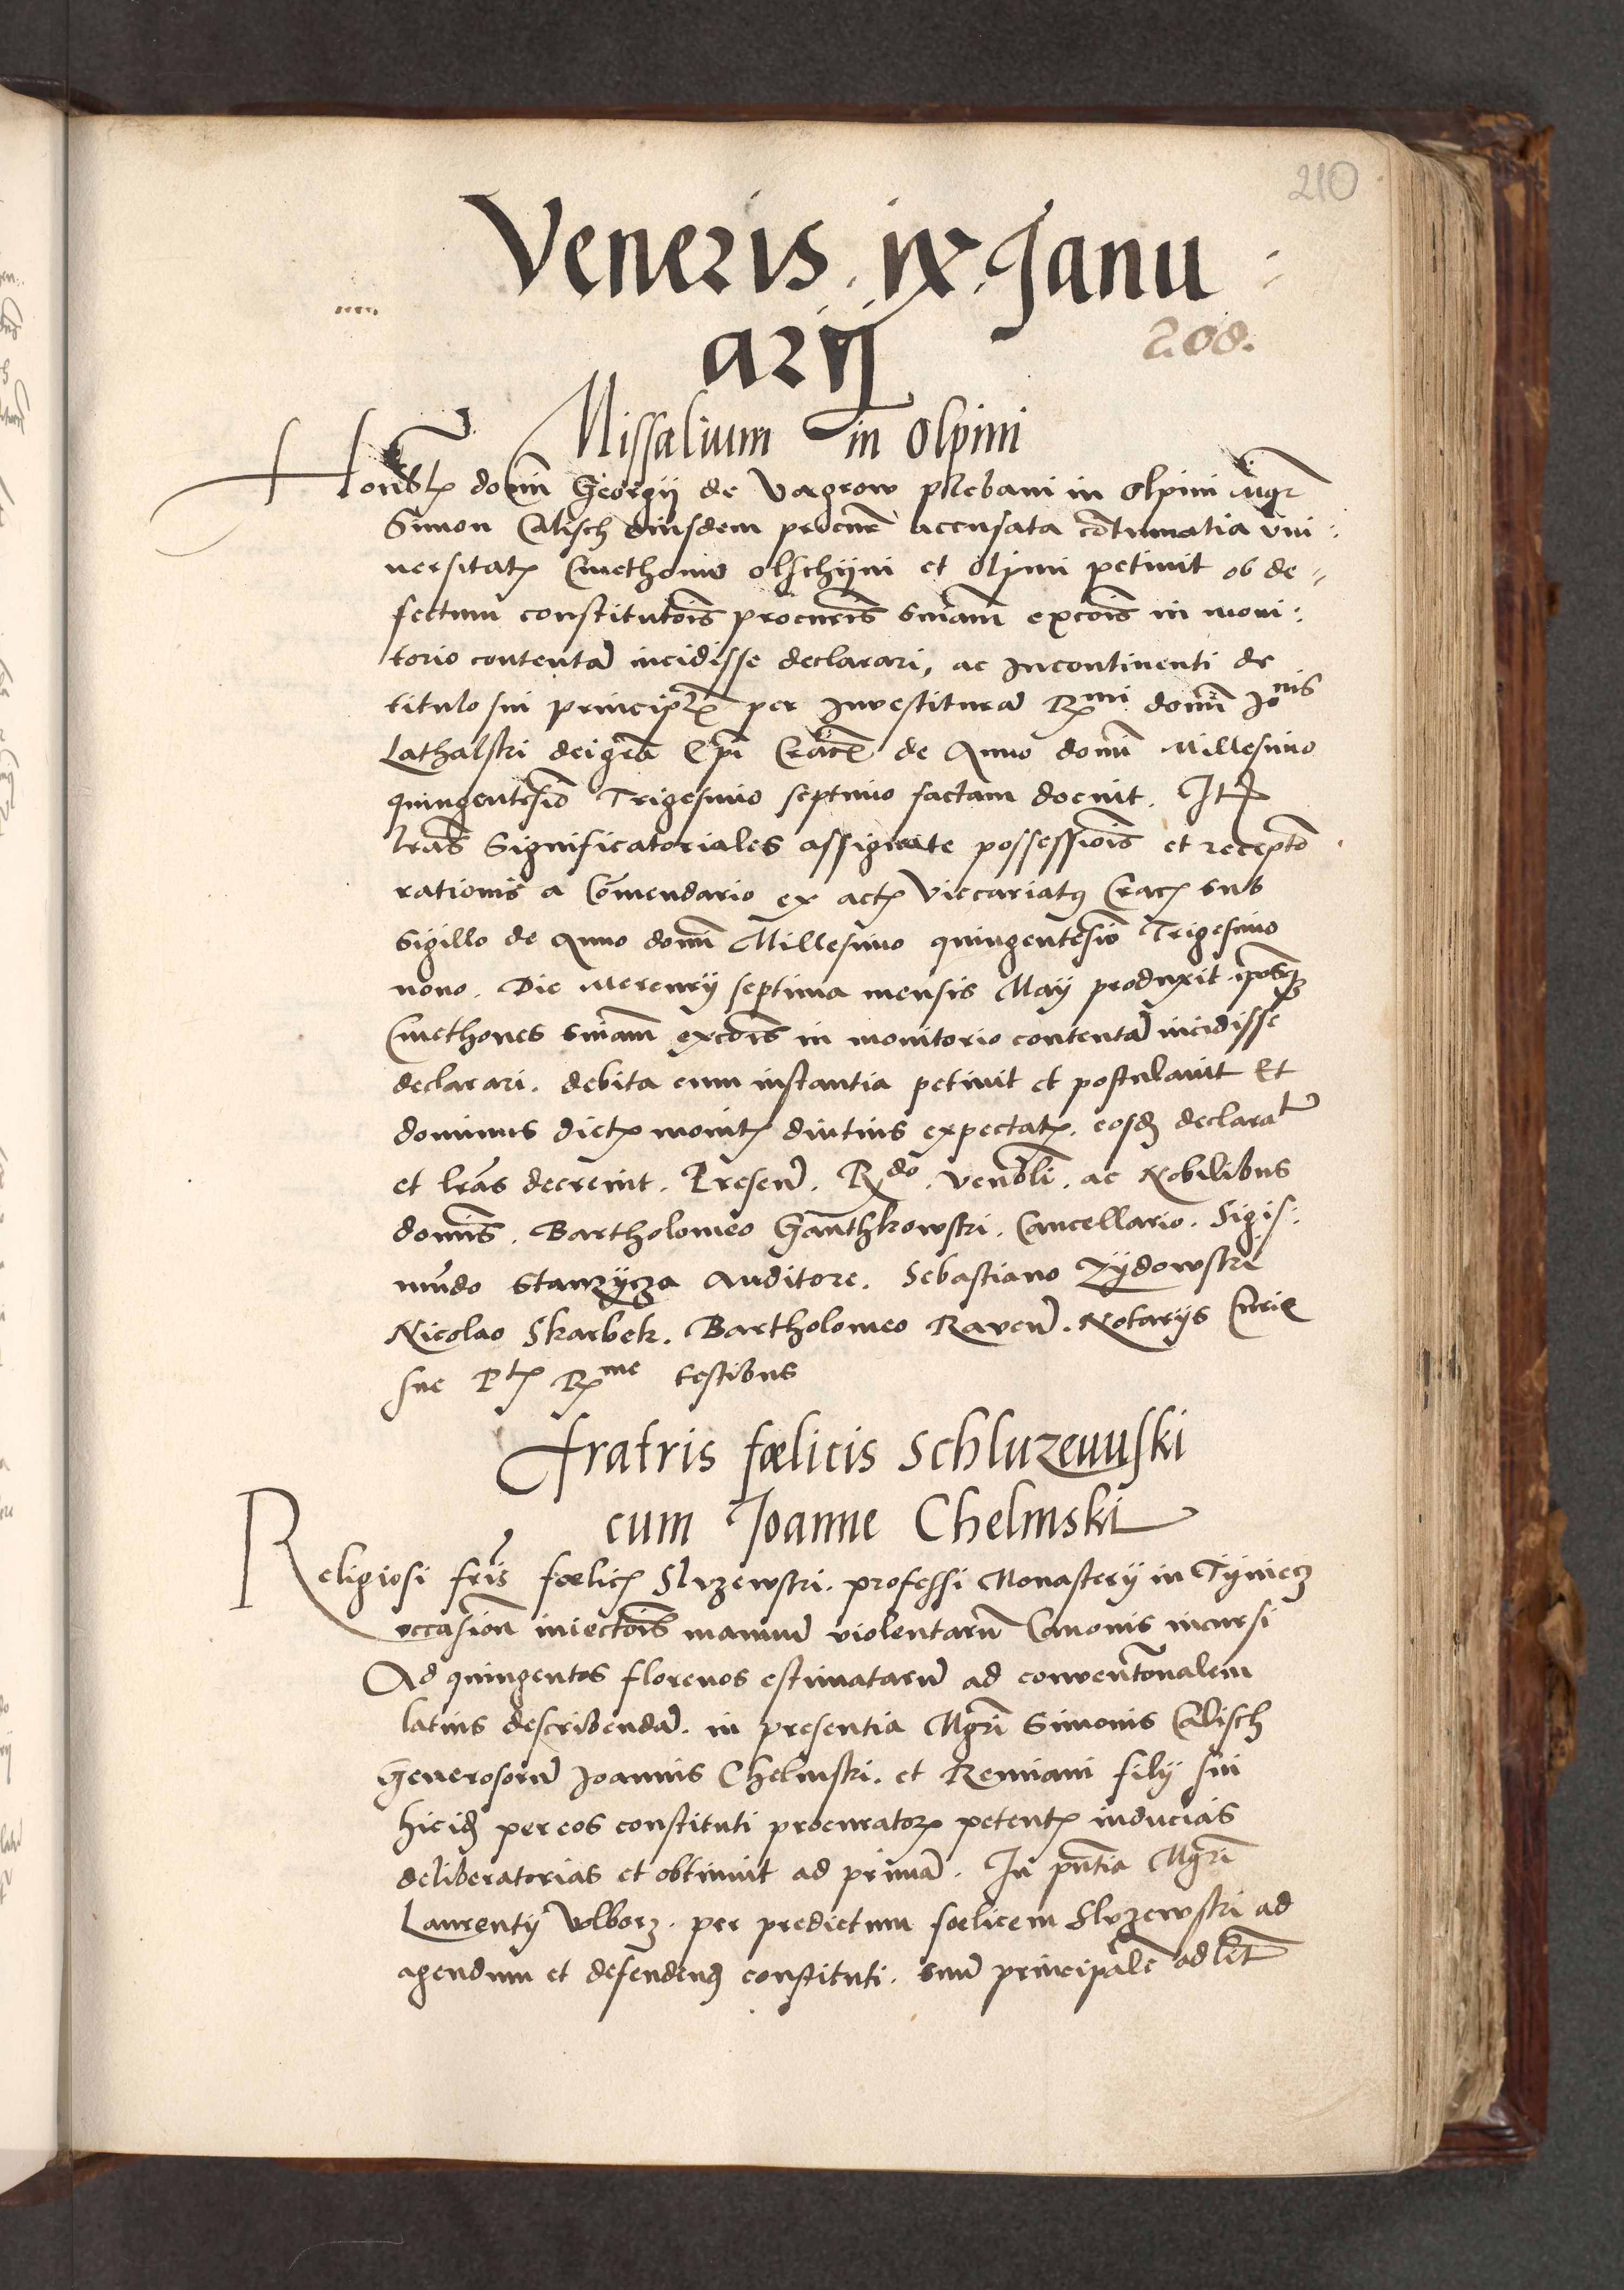 210
Veneris . ix . Janu
arij
208.
Missalium in Olpini
Honēbłis domī Georgij de Vagrow plebani in Olpini Mgr
Simon Calisch eiusdem procur̄ accusata cōtumatia vni :
uersitatis Cmethonū olschijni et olpini petiuit ob de -
fectum constitutōis procuris sn̄iam excōis in moni :
torio contentā incidisse declarari, ac Incontinenti de
titulo sui principalis per Inuestiturā Rmi domī Jonis
Lathalski dei gr̄a Epī Crac̄ de Anno domī Millesimo
quingentesīo Trigesimo septimo factam docuit . Itē
lr̄as Significatoriales assignate possessiōis et receptō
rationis a Cōmendario ex actis Viccariatus Crac̄ sub
sigillo de Anno domī Millesimo quingentesīo Trigesimo
nono . Die Mercurij septima mensis Maij produxit ipsosq3
Cmethones sn̄iam excōis in monitorio contentā incidisse
declarari . debita cum instantia petiuit et postulauit Et
dominus dictis monitis diutius expectatis . eosd declarat
et lr̄as decreuit . Presen̄ . Rdo . venēbli . ac Nobilibus
domīs . Bartholomeo Ganthkowski . Cancellario . Sigis :
mūdo Stanzijcza Auditore . Sebastiano Zÿdowski
Nicolao Skarbek . Bartholomeo Raven̄ . Notarijs Curie
sue Ptis Rme testibus
Fratris fœlicis Schluzeuuski
cum Joanne Chelmski
Religiosi fr̄is fœlicis Sluzewski . professi Monasterij in Tÿniecz
occasiōn iniectōis manuū violentarū Canonis incursi
Ad quingentos florenos estimatarū ad conuentōnalem
latius describendā . in presentia Mgrī Simonis Calisch
Generosorū Joannis Chelmski . et Remiani filij sui
hicid per eos constituti procuratoris petentis inducias
deliberatorias et obtinuit ad primā . In pn̄tia Mgrī
Laurentij Wlborz . per predictum fœlicem Sluzewski ad
agendum et defendend constituti . suū principalē ad let̄